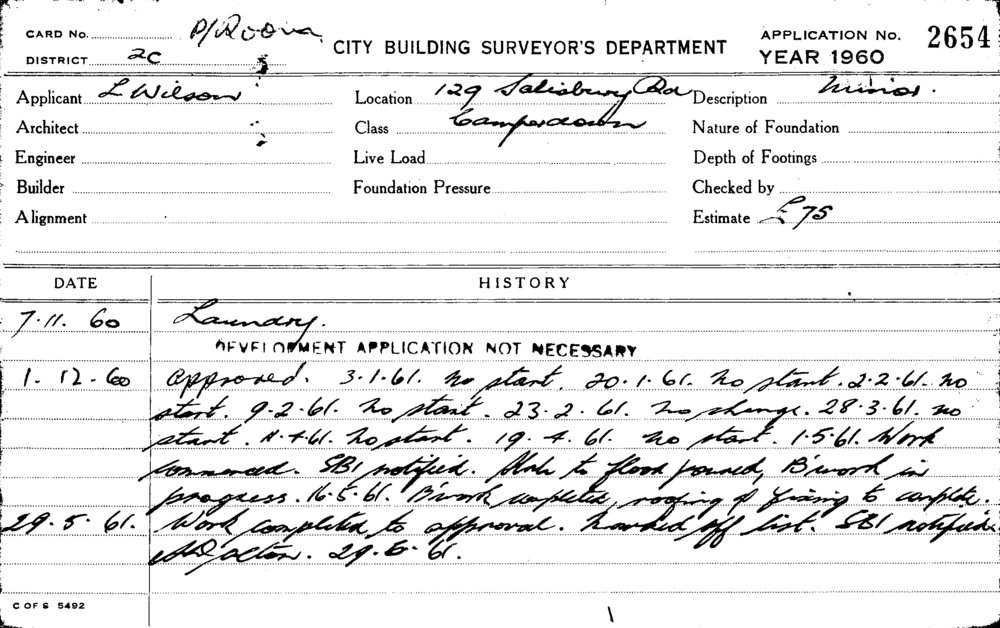 CARD No. P/Room
CITY BUILDING SURVEYOR'S DEPARTMENT
APPLICATION No. 2654
DISTRICT 2C
YEAR 1960
Applicant L Wilson Location 129 Salisbury Rd Description Minor.
Architect Class Camperdown Nature of Foundation
Engineer Live Load Depth of Footings
Builder Foundation Pressure Checked by
Alignment Estimate £75
DATE HISTORY
7.11.60 Laundry.
DEVELOPMENT APPLICATION NOT NECESSARY
1.12.60 Approved. 3.1.61. No start. 20.1.61. No start. 2.2.61. no
start. 9.2.61. No start. 23.2.61. No change. 28.3.61. no
start. 11.4.61. No start. 19.4.61. no start. 1.5.61. Work
commenced. SBI notified. Slab to floor poured, B'work in
progress. 16.5.61. B'work completed, roofing & fixing to complete.
29.5.61. Work completed to approval. Marked off list. SBI notified.
29.5.61.
C OF S 5492